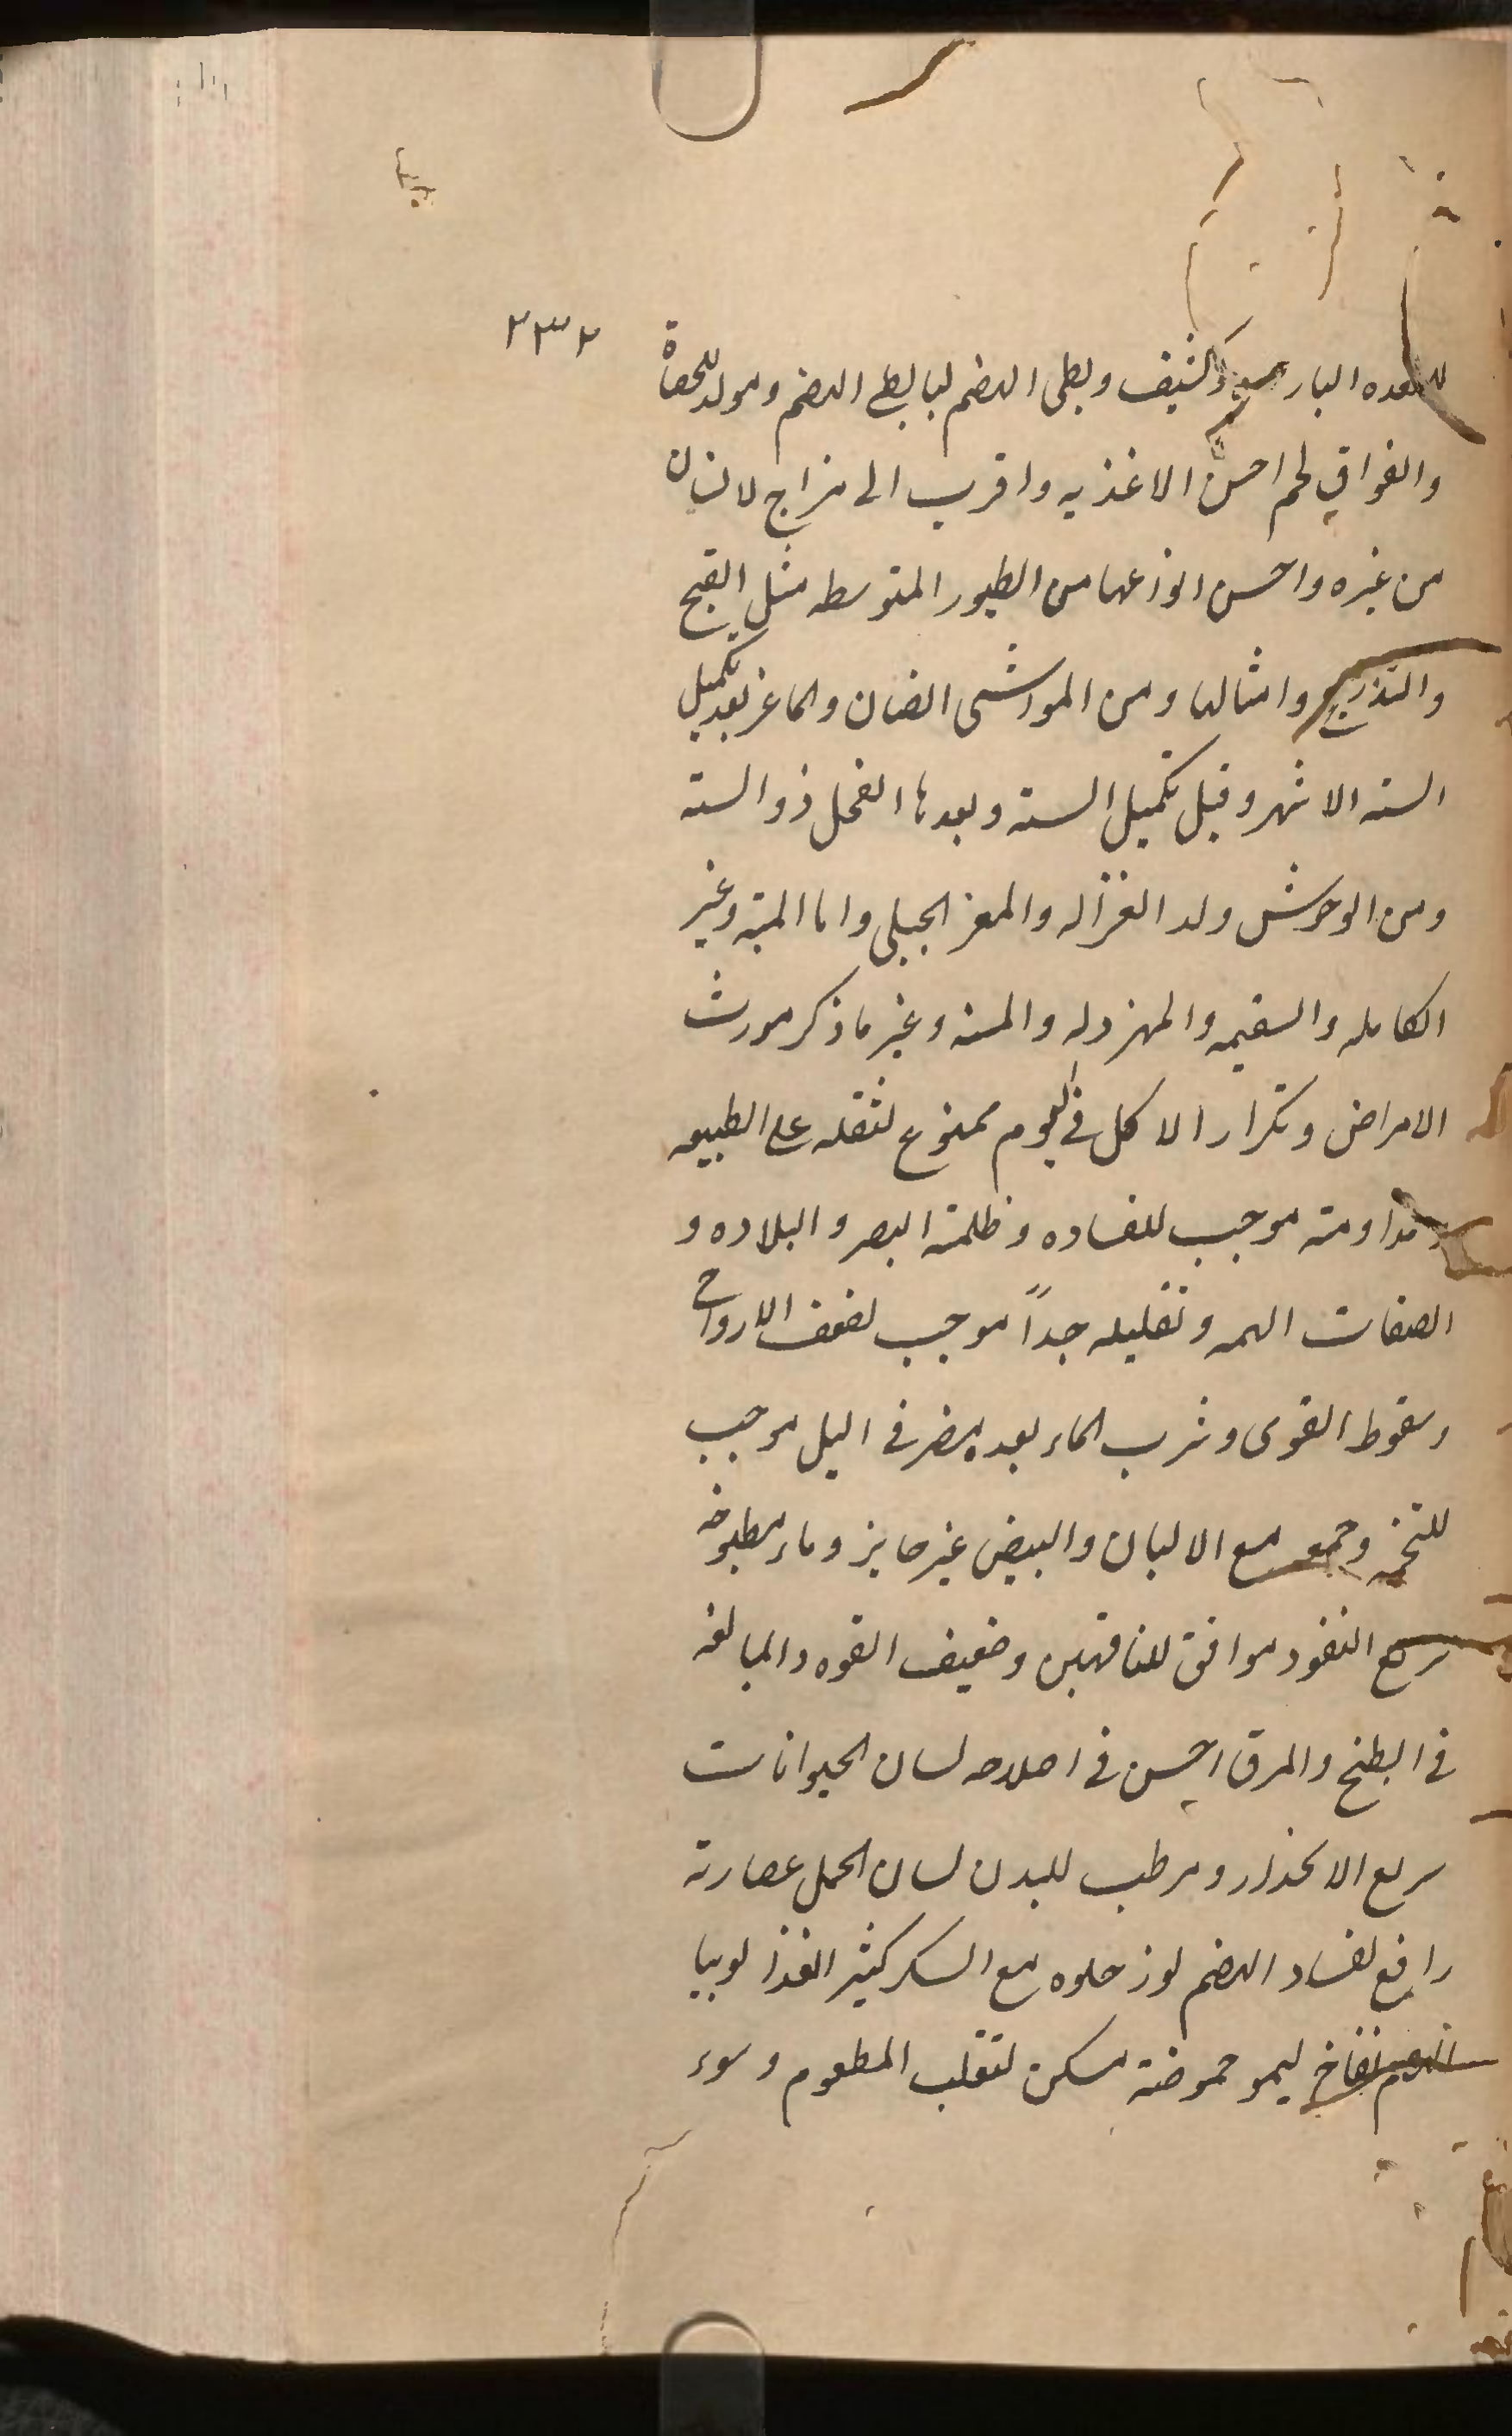 ٢٣٢
للمعده البار كثيف وبطى الهضم لبا بطئ الهضم ومولد للحصاة
والفواق لحم احسن الاغذيه واقرب الى مزاج لانسان
من غيره واحسن انواعها من الطيور المتوسطه مثل القبج
والتذرج وامثالها ومن المواشى الضان والماعز بعد تكميل
السته الاشهر وقبل تكميل السنة وبعدها الفحل ذو السنة
ومن الوحوش ولد الغزاله والمعز الجبلى واما الميتة وغير
الكامله والسقيمه والمهزوله والمسنه وغير ما ذكر مورث
الامراض وتكرار الاكل فى اليوم ممنوع لثقله على الطبيعه
ومداومته موجب للقساوه وظلمة البصر والبلاده و
الصفات البهمه وتقليله جداً موجب لضعف الارواح
وسقوط القوى وشرب الماء بعده مضر فى اليل موجب
للتخمه وجمعه مع الالبان والبيض غير جايز وماء مطبوخه
سريع النفوذ موافق للناقهين وضعيف القوه والمبالغه
فى الطبخ والمرق احسن فى اصلاحه لسان الحيوانات
سريع الانحدار ومرطب للبدن لسان الحمل عصارته
رافع لفساد الهضم لوز حلوه مع السكر كثير الغذا لوبيا
نفاخ ليمو حموضته مسكن لتقلب المطعوم وسوء